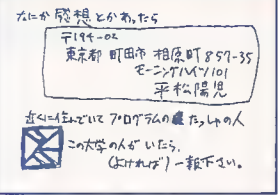 なにか感想とかあったら
〒194-02
東京都 町田市 相原町 857-35
モーニングハイツ101
平松陽児
近くに住んでいて プログラムの たっしゃの人
この大学の人がいたら、
(よければ) 一報下さい。